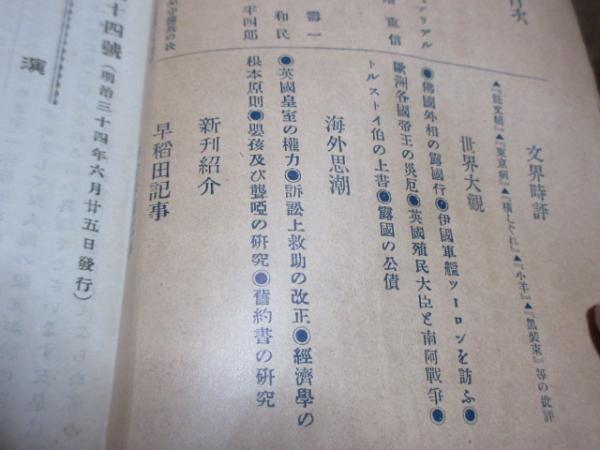 目次
アリアル
重信
壽一
和民
半四郎
文界時評
等の批評
世界大觀
◉佛國外相の露國行◉伊國軍艦ツーロンを訪ふ◉
歐洲各國帝王の災厄◉英國殖民大臣と南阿戰爭◉
トルストイ伯の上書◉露國の公債
海外思潮
◉英國皇室の權力◉訴訟上救助の改正◉經濟學の
根本原則◉嬰孩及び聾啞の硏究◉舊約書の硏究
新刊紹介
早稻田記事
十四號（明治三十四年六月廿五日發行）
演